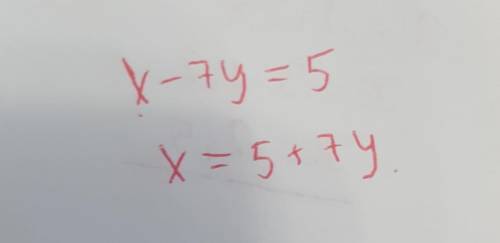 x - 7y = 5
x = 5 + 7y.